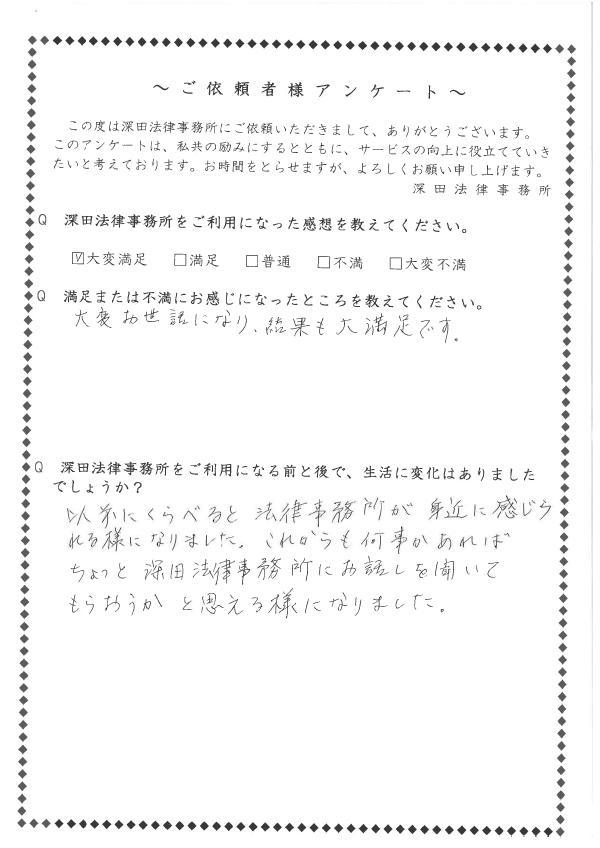 ～ご依頼者様アンケート～
この度は深田法律事務所にご依頼いただきまして、ありがとうございます。
このアンケートは、私共の励みにするとともに、サービスの向上に役立てていき
たいと考えております。お時間をとらせますが、よろしくお願い申し上げます。
深田法律事務所
Q 深田法律事務所をご利用になった感想を教えてください。
☑大変満足 □満足 □普通 □不満 □大変不満
Q 満足または不満にお感じになったところを教えてください。
大変お世話になり、結果も大満足です。
Q 深田法律事務所をご利用になる前と後で、生活に変化はありました
でしょうか？
以前にくらべると法律事務所が身近に感じら
れる様になりました。これからも何事かあれば
ちょっと深田法律事務所にお話しを聞いて
もらおうかと思える様になりました。